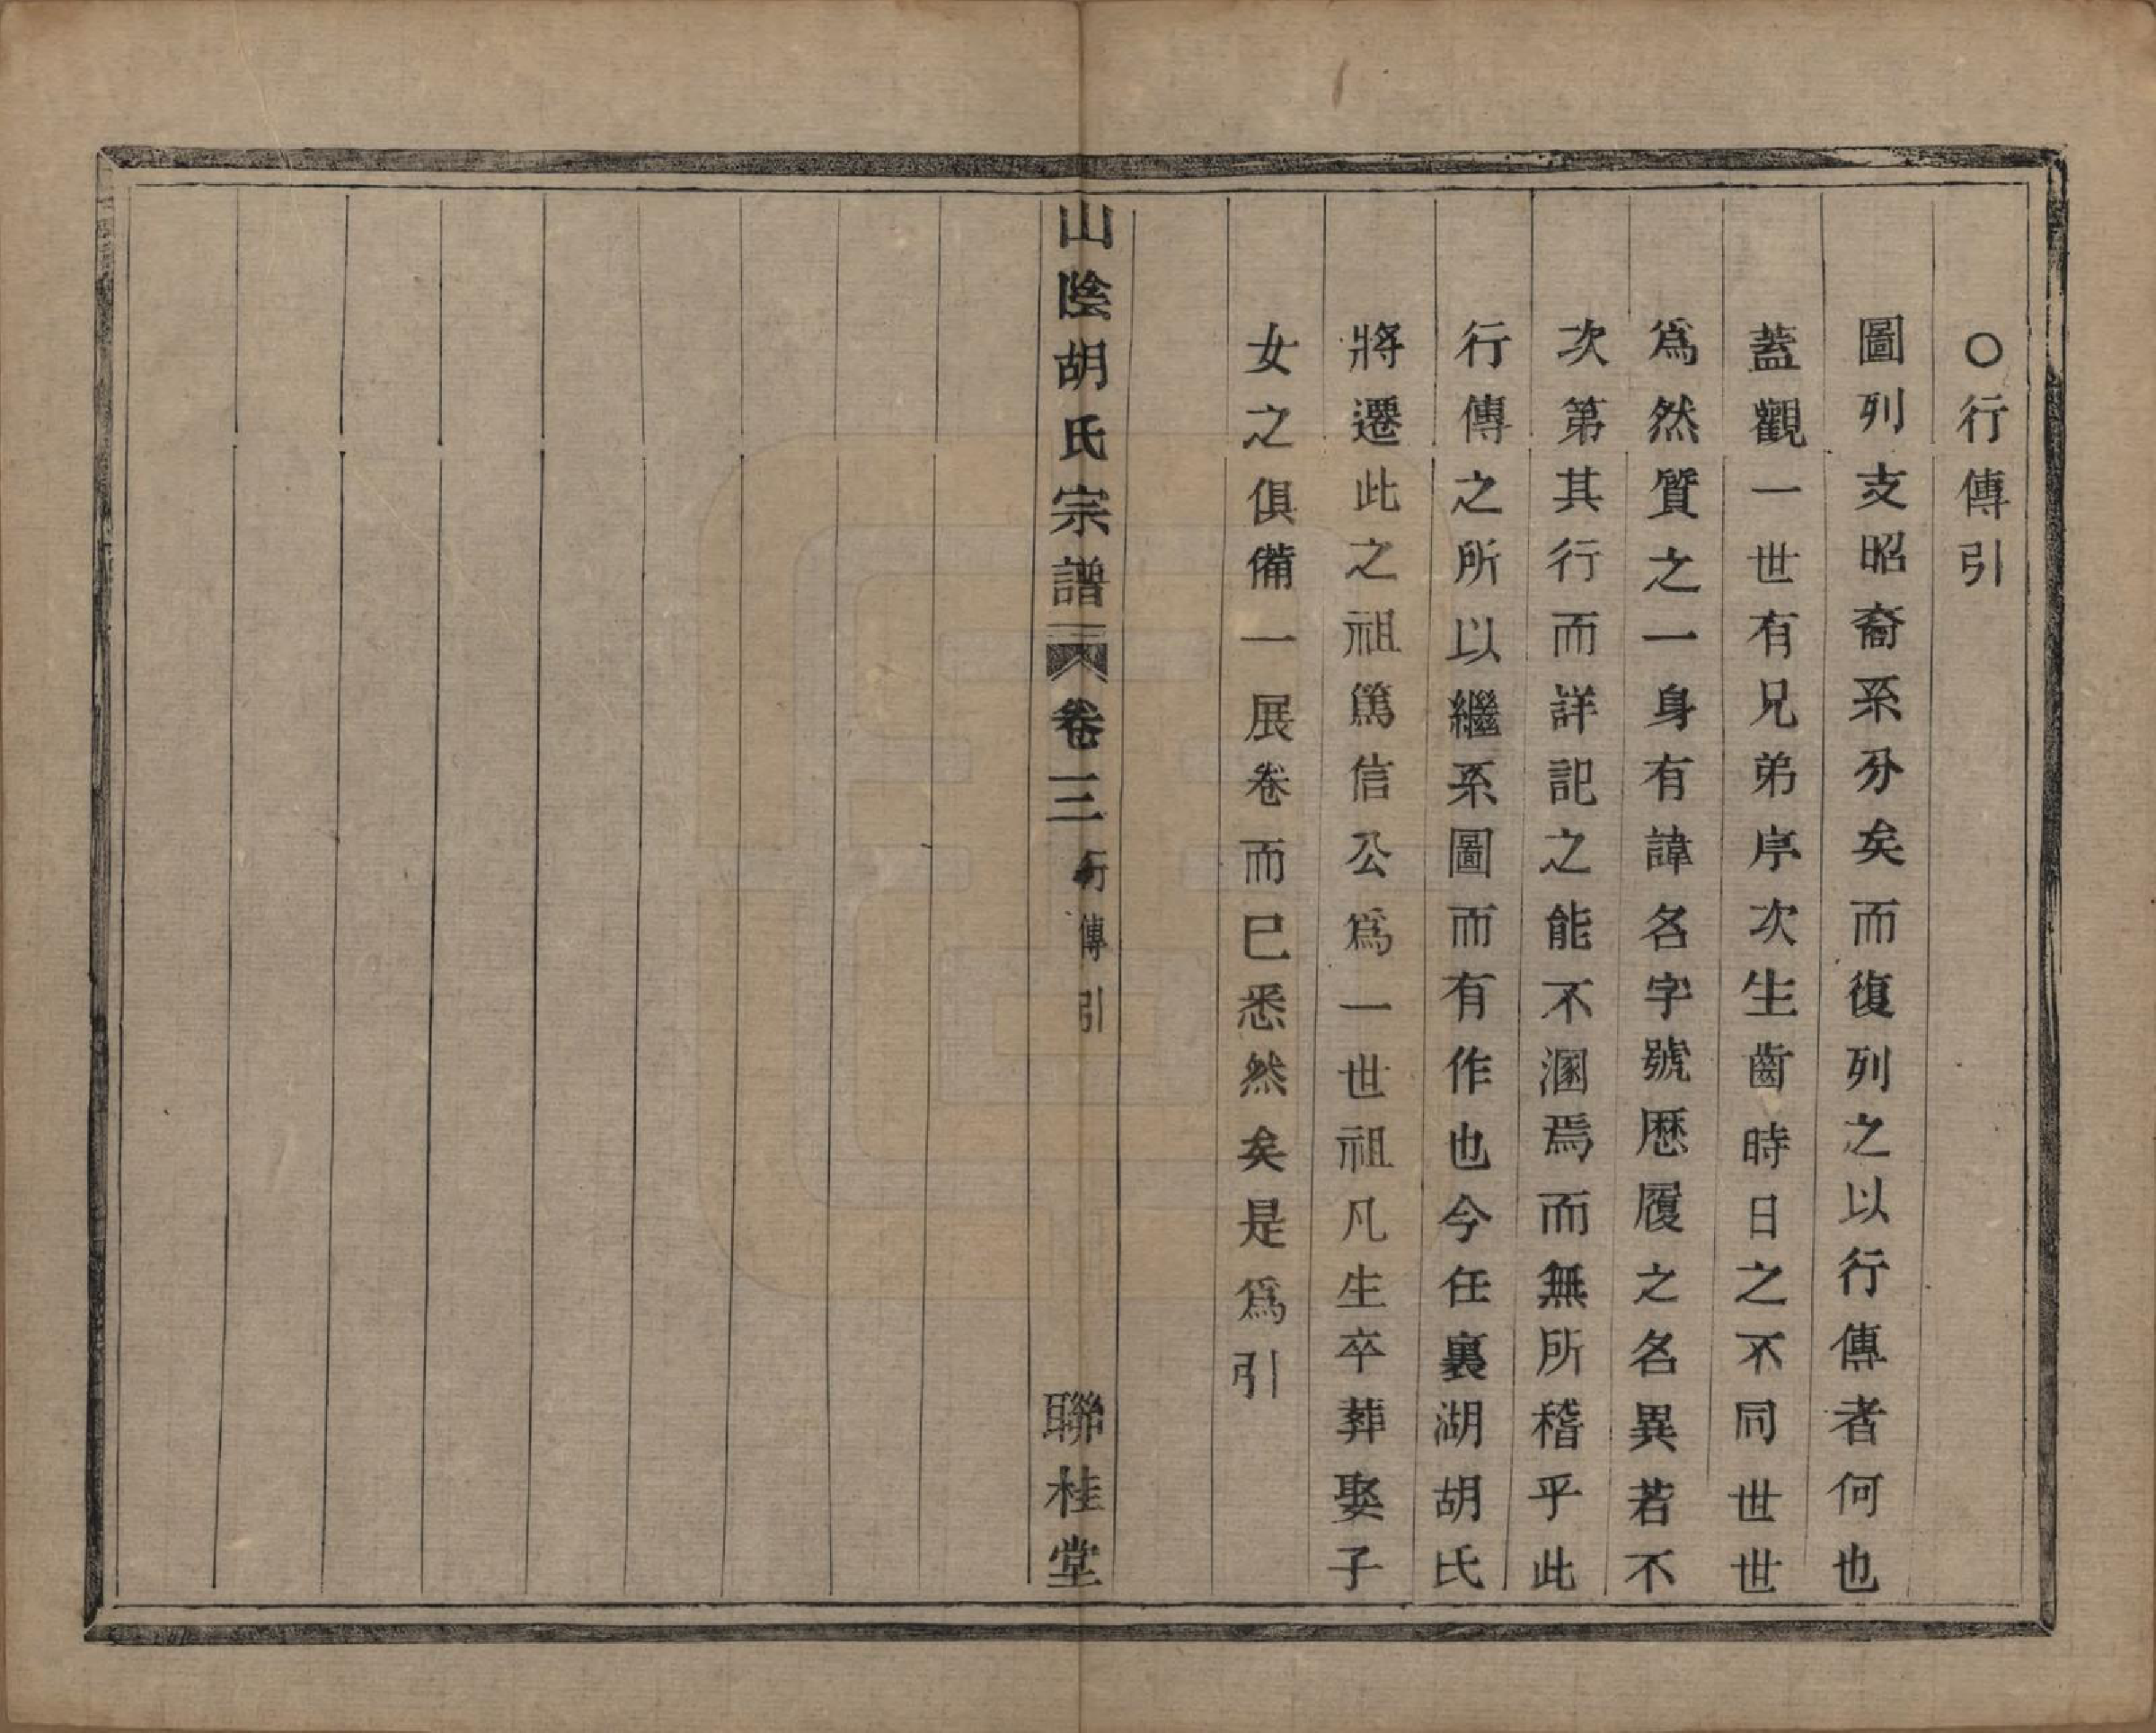 ○行傳引
圖列支昭裔系分矣而復列之以行傳者何也
蓋觀一世有兄弟序次生齒時日之不同世世
爲然質之一身有諱名字號歷履之名異若不
次第其行而詳記之能不溷焉而無所稽乎此
行傳之所以繼系圖而有作也今任裏湖胡氏
將遷此之祖篤信公爲一世祖凡生卒葬娶子
女之俱備一展卷而巳悉然矣是爲引
山陰胡氏宗譜 卷三 行傳引 聯桂堂